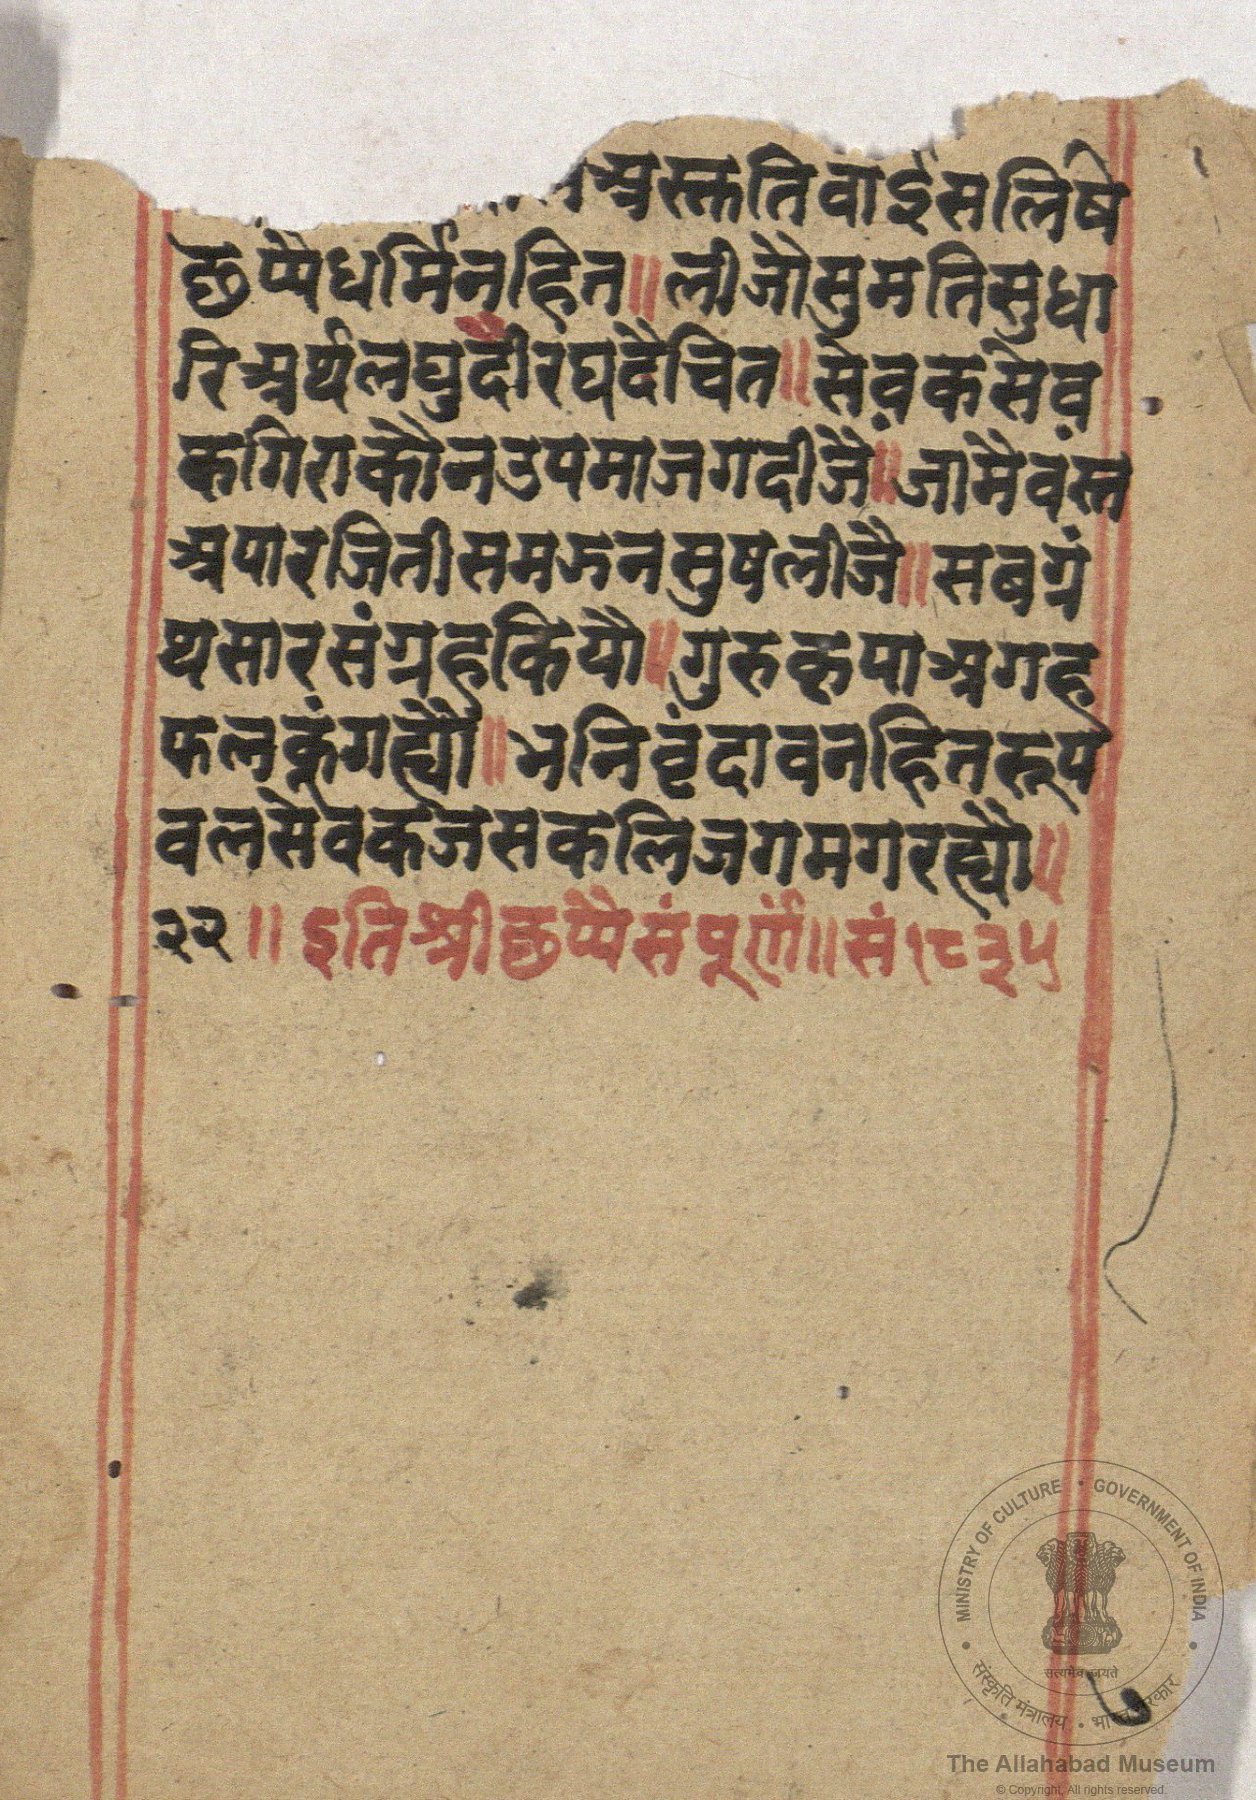 अस्कतिवाईसलिषे
छप्पैधर्मिनहित॥लीजौसुमतिसुधा
रिअर्थलघुदीरघदैचित॥सेवकसेव
कगिराकौनउपमाजगदीजै॥जामैवस्त
अपारजितीसमझनसुषलीजै॥सबग्रं
थसारसंग्रहकियौ॥गुरुकृपाअगह
फलकुंगह्यौ॥भनिवृंदावनहितरूप
वलसेवकजसकलिजगमगरह्यौ॥
२२॥इतिश्रीछप्पैसंपूर्णं॥सं१८३५
७
MINISTRY OF CULTURE • GOVERNMENT OF INDIA
सत्यमेव जयते
संस्कृति मंत्रालय • भारत सरकार
The Allahabad Museum
© Copyright, All rights reserved.